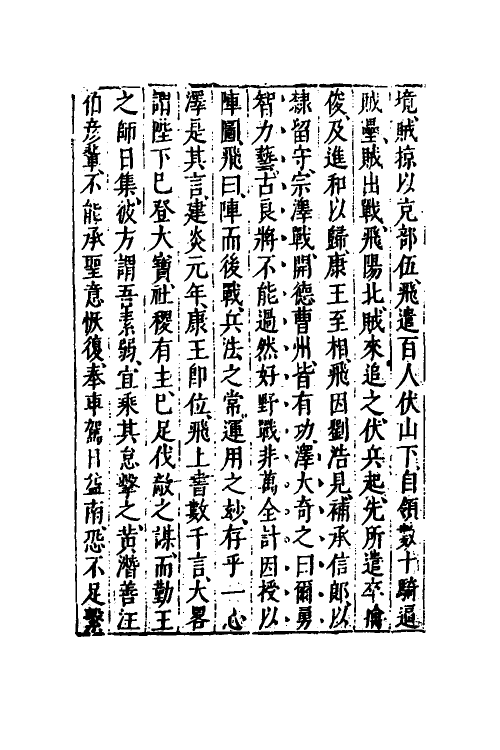 境、賊掠以克部伍、飛遣百人伏山下自領數十騎逼
賊壘、賊出戰、飛陽北賊來追之、伏兵起、先所遣卒擒
俊、及進和以歸康王至相飛因劉浩見、補承信郎、以
隸留守、宗澤戰、開德曹州、皆有功、澤大奇之曰爾勇
智力藝、古良將不能過、然好野戰非萬全計因授以
陣圖、飛曰、陣而後戰、兵法之常、運用之妙、存乎一心
澤是其言、建炎元年、康王卽位、飛上書數千言、大畧
謂陛下已登大寶、社稷有主、已足伐敵之謀、而勤王
之師日集、彼方謂吾素弱、宜乘其怠擊之、黃潛善汪
伯彥輩、不能承聖意恢復、奉車駕日益南、恐不足繫